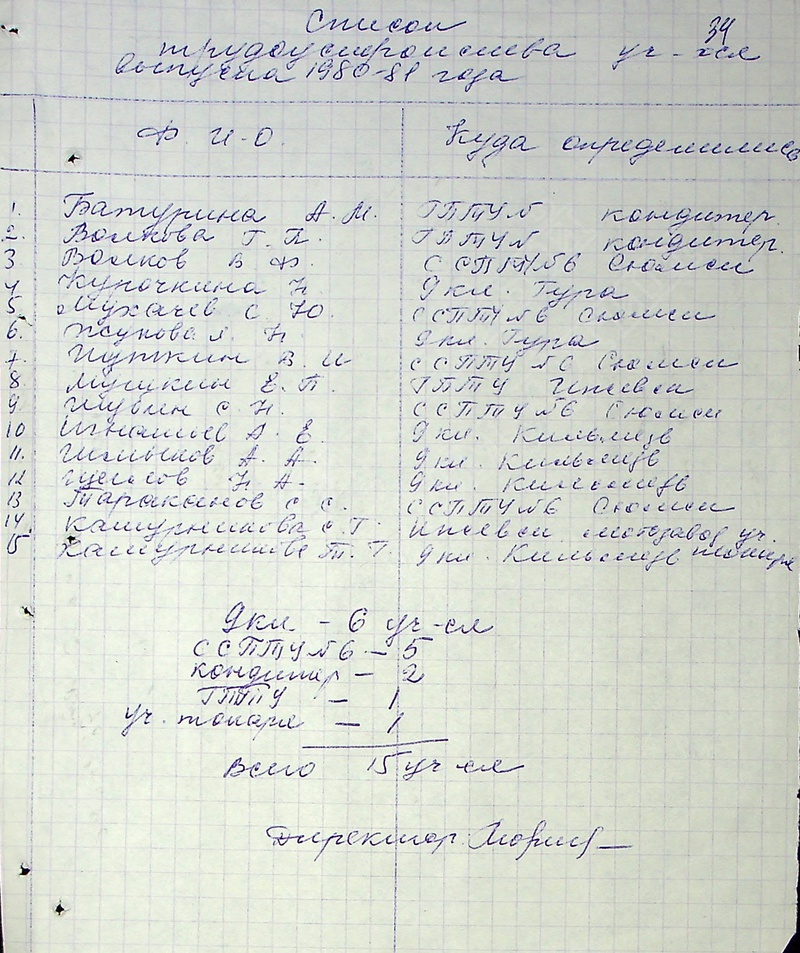 34
Список
трудоустройства уч-хся
выпуска 1980-81 года
Ф. И. О. Куда определились
1. Батурина А. М. ГПТУ № кондитер.
2. Волкова Г. П. ГПТУ № кондитер.
3 Волков В Ф. ССПТУ №6 Сюмси
4 Курочкина Н 9 кл. Тура
5 Мухачев С. Ю. ССПТУ №6 Сюмси
6. Жукова Н. 9 кл. Тура
7. В И ССПТУ №6 Сюмси
8 Е. П. ГПТУ Ижевск
9 С. Н. ССПТУ №6 Сюмси
10 Игнатьев А. Е. 9 кл. Кильмезь
11. А. А. 9 кл. Кильмезь
12 Н А. 9 кл. Кильмезь
13 Тараканов С С. ССПТУ №6 Сюмси
14. Кашурникова С. Г. Ижевск мотозавод уч. токаря
15 Т. Г. 9 кл. Кильмезь
9 кл - 6 уч-ся
ССПТУ №6 - 5
кондитер - 2
ГПТУ - 1
уч. токаря - 1
Всего 15 уч-ся
Директор: